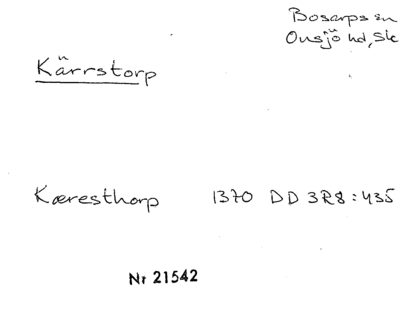 Bosarps sn
Onsjö hd, Sk
Kärrstorp
Kæresthorp 1370 DD 3R8:435
Nr 21542